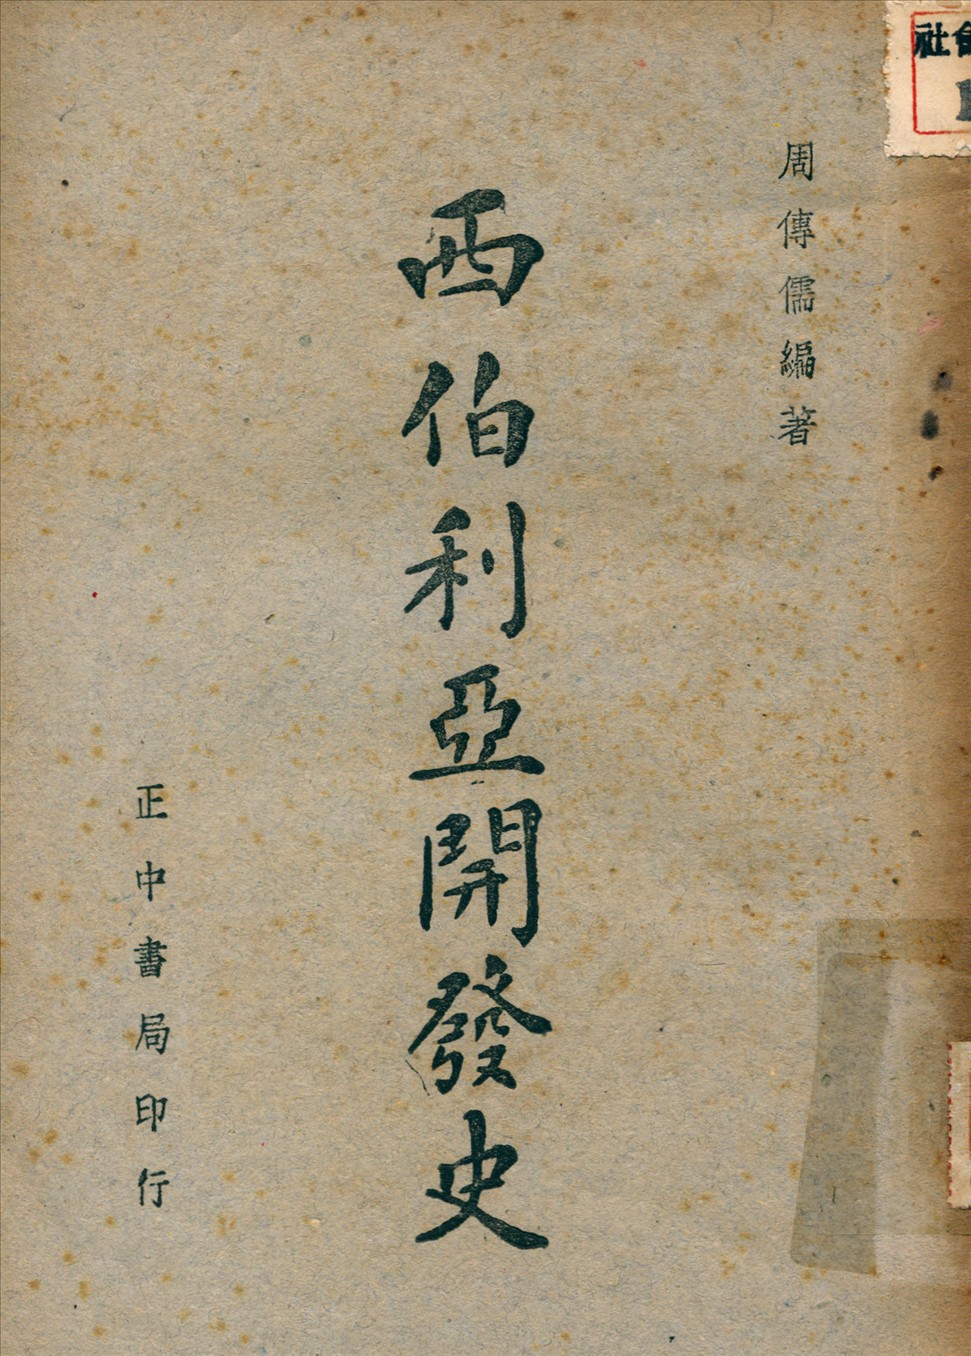 周傳儒編著
西伯利亞開發史
正中書局印行
社